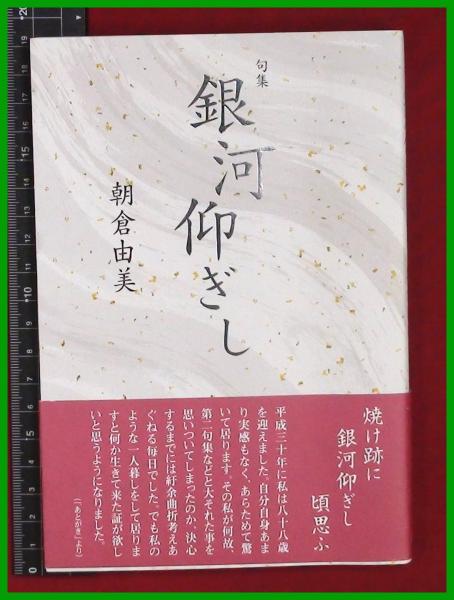 句集
銀河仰ぎし
朝倉由美
焼け跡に
銀河仰ぎし
頃思ふ
平成三十年に私は八十八歳
を迎えました。自分自身あま
り実感もなく、あらためて驚
いて居ります。その私が何故、
第二句集などと大それた事を
思いついてしまったのか、決心
するまでには紆余曲折考えあ
ぐねる毎日でした。でも私の
ような一人暮しをして居りま
すと何か生きて来た証が欲し
いと思うようになりました。
(「あとがき」より)
0
5
10
15
20